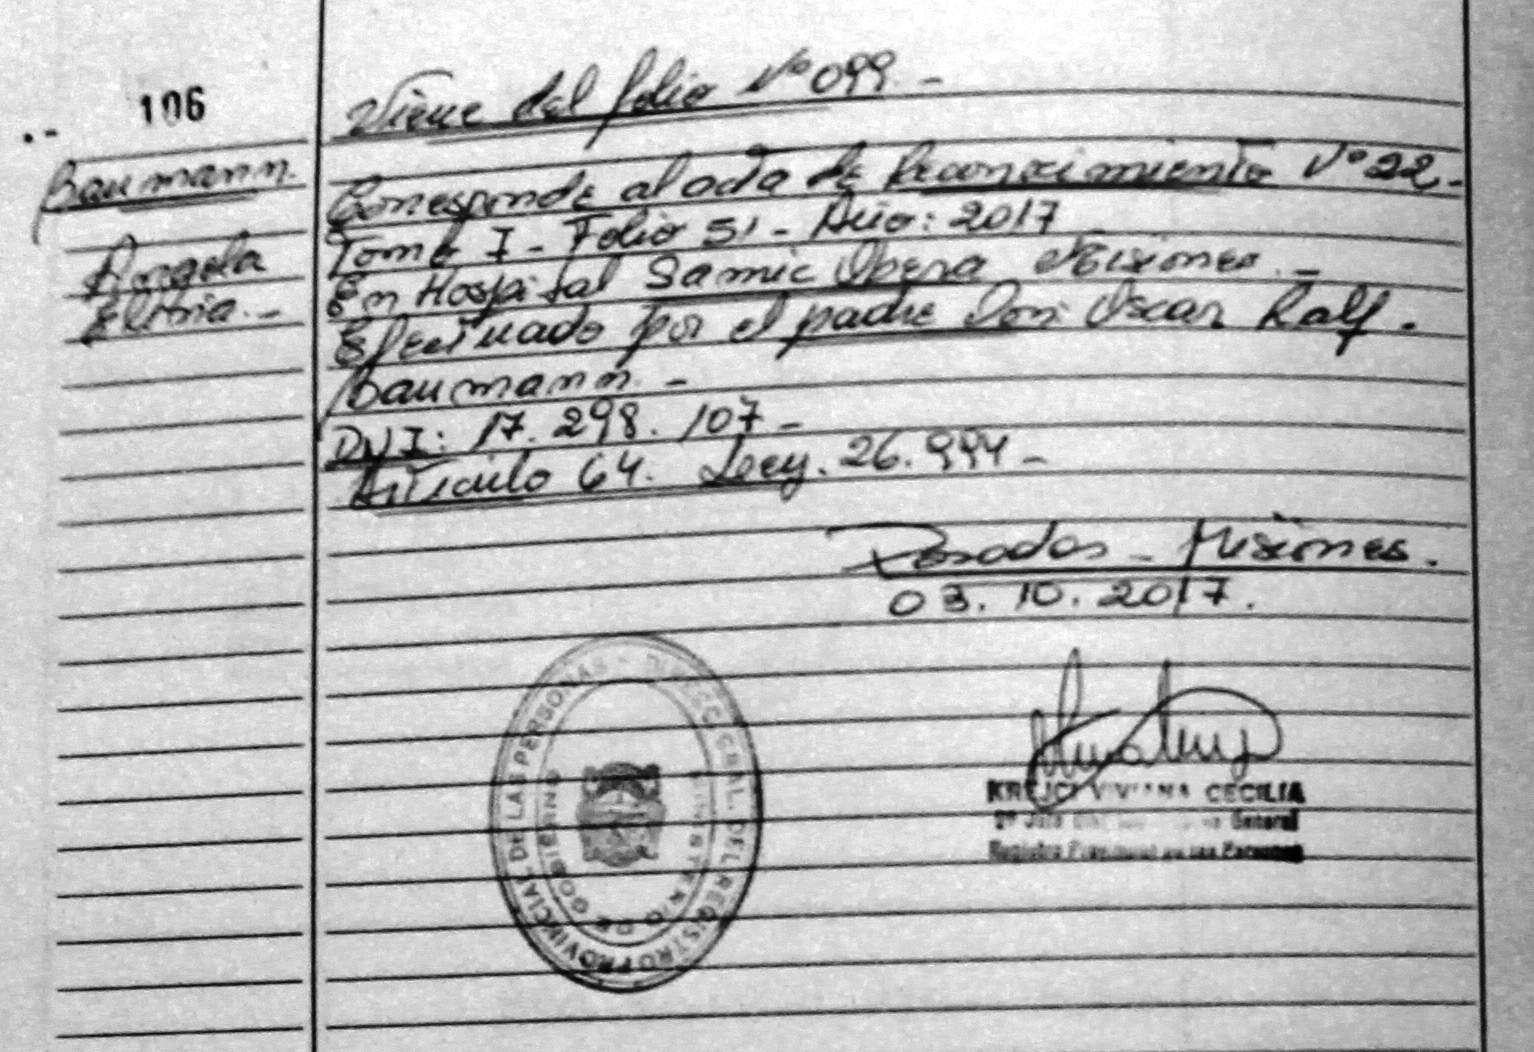 106
Baumann.
Angela
Viene del folio Nº 099. -
Corresponde al acta de Reconocimiento Nº 22. -
Tomo I - Folio 51 - Año: 2017
En Hospital Samic Obera Misiones. -
Efectuado por el padre Don: Oscar Ralf.
Baumann. -
DNI: 17.298.107 -
Artículo 64. Ley. 26.994 -
Posadas - Misiones.
03.10.2017.
DIRECC. GRAL. DEL REGISTRO PROVINCIAL DE LAS PERSONAS -
MINISTERIO DE GOBIERNO
KREJCI VIVIANA CECILIA
2º Jefe General
Registro Provincial de las Personas